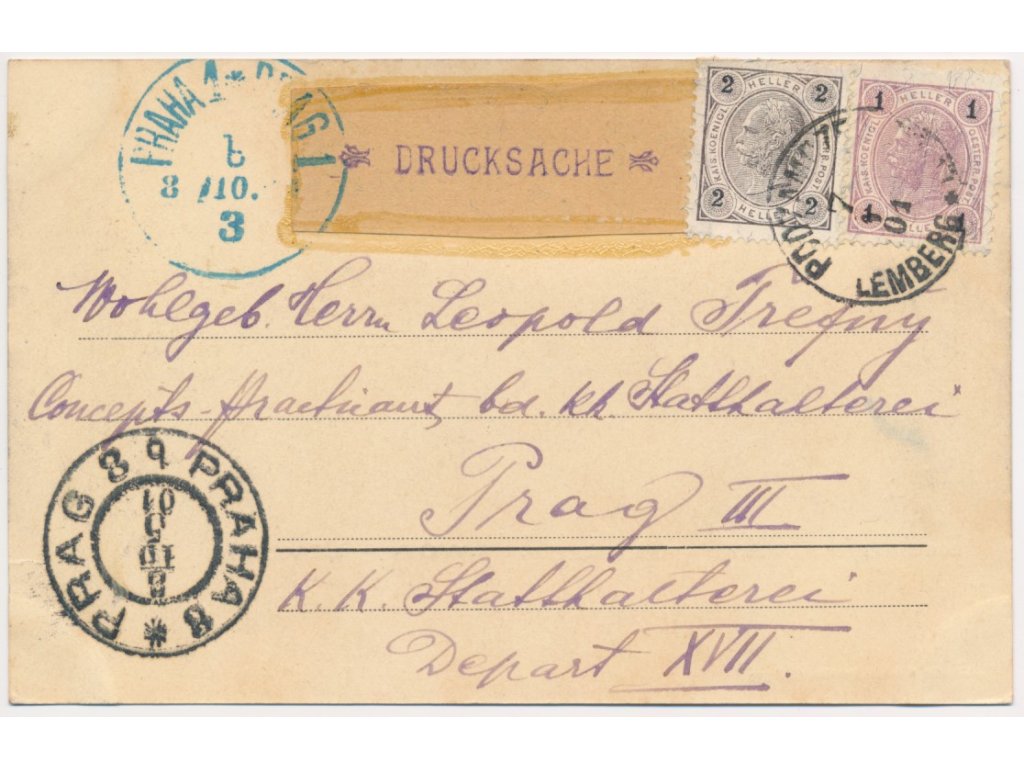 PRAHA 1 * PRAG 1
b
8 /10.
3
* DRUCKSACHE *
2 HELLER 2
KAIS. KOENIGL. OESTERR. POST
2 HELLER 2
1 HELLER 1
KAIS. KOENIGL. OESTERR. POST
1 HELLER 1
7
01
LEMBERG *
Wohlgeb. Herrn Leopold Trefny
Concepts-Practicant, bd. kk. Statthalterei
Prag III
K. K. Statthalterei
Depart XVII.
PRAG 8 PRAHA 8 *
8
10
5
01